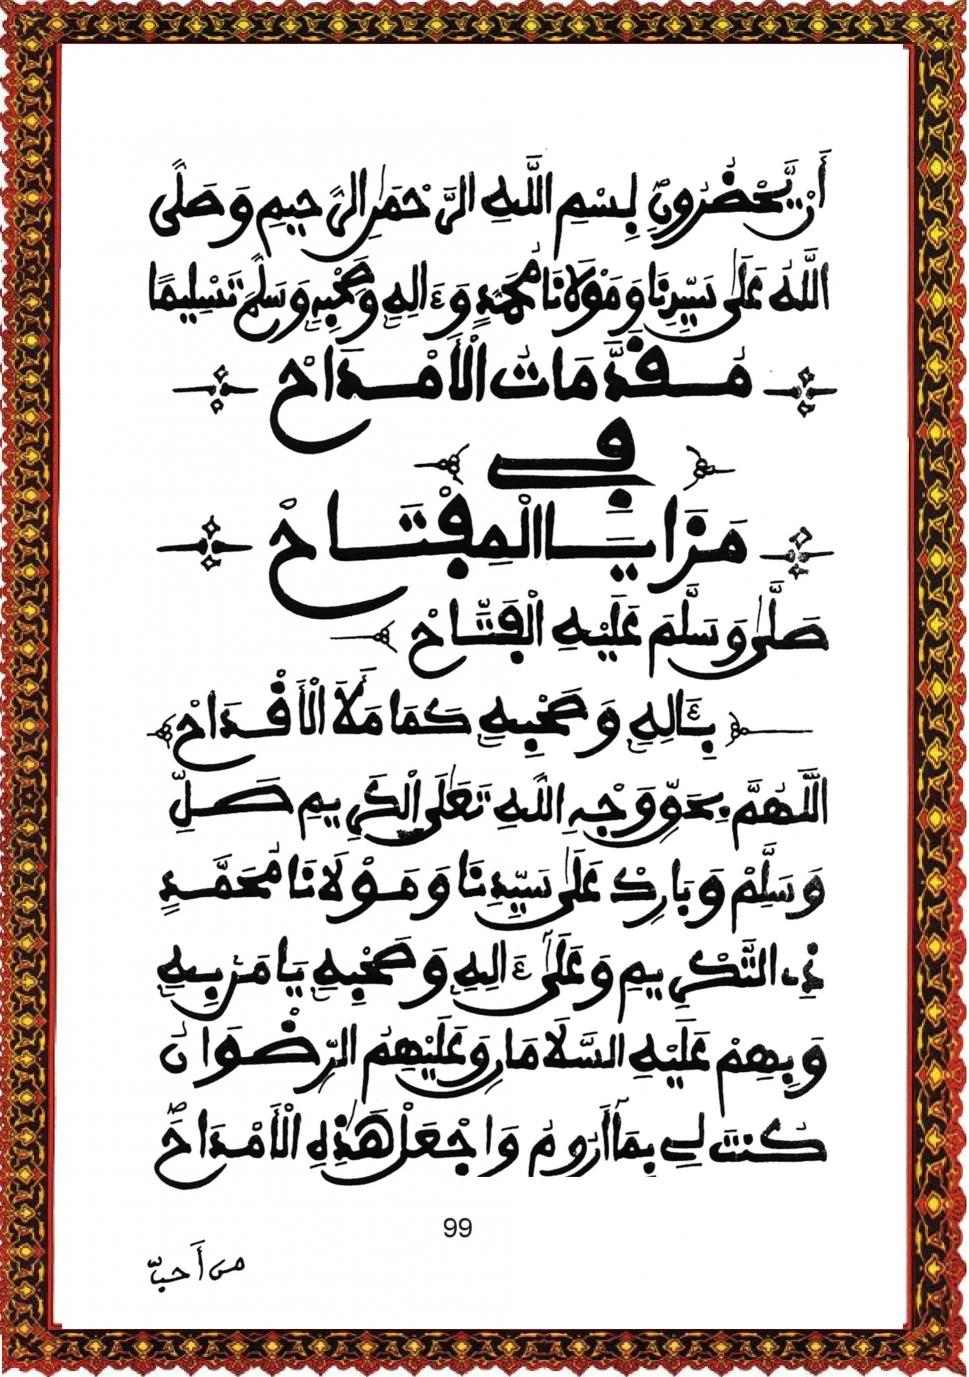 أَنْ يَّحْضُرُونِ بِسْمِ اللَّهِ الرَّحْمَٰنِ الرَّحِيمِ وَصَلَّى
اللَّهُ عَلَىٰ سَيِّدِنَا وَمَوْلَانَا مُحَمَّدٍ وَءَالِهِ وَصَحْبِهِ وَسَلَّمَ تَسْلِيمًا
مُقَدَّمَاتُ الْأَمْدَاحْ
فِي
مَزَايَا الْمِفْتَاحْ
صَلَّىٰ وَسَلَّمَ عَلَيْهِ الْفَتَّاحْ
بِـَٔالِهِ وَصَحْبِهِ كَمَا مَلَأَ الْأَقْدَاحْ
اللَّهُمَّ بِحَقِّ وَجْهِ اللَّهِ تَعَلَىٰ الْكَرِيمِ صَلِّ
وَسَلِّمْ وَبَارِكْ عَلَىٰ سَيِّدِنَا وَمَوْلَانَا مُحَمَّدٍ
ذِي التَّكْرِيمِ وَعَلَىٰ ءَالِهِ وَصَحْبِهِ يَا مَنْ بِهِ
وَبِهِمْ عَلَيْهِ السَّلَامَانِ وَعَلَيْهِمُ الرِّضْوَانُ
كُنتَ لِي بِمَا أَرُومُ وَاجْعَلْ هَٰذِهِ الْأَمْدَاحَ
99
من أَحبّ